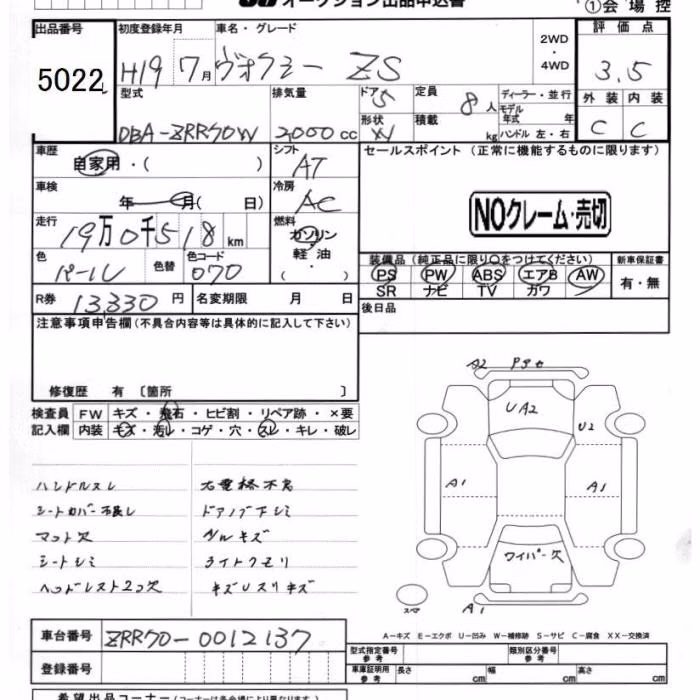 オークション出品申込書
①会場控
出品番号 初度登録年月 車名・グレード 2WD・4WD 評価点
5022 H19 7月 ヴォクシー ZS 3.5
型式 排気量 ドア 定員 ディーラー・並行 外装 内装
DBA-ZRR70W 2000cc 5 8人 モデル年式 年 C C
形状 W 積載 kg ハンドル 左・右
車歴 自家用・( ) シフト AT セールスポイント (正常に機能するものに限ります)
車検 年 月( 日) 冷房 AC
NOクレーム・売切
走行 19万0千518km 燃料 ガソリン・軽油・( )
色 パール 色替 色コード 070
装備品(純正品に限り○をつけてください) 新車保証書
PS PW ABS エアB AW 有・無
SR ナビ TV カワ
R券 13,330円 名変期限 月 日 後日品
注意事項申告欄(不具合内容等は具体的に記入して下さい)
修復歴 有 〔箇所 〕
検査員 FW キズ・飛石・ヒビ割・リペア跡・×要
記入欄 内装 キズ・汚レ・コゲ・穴・スレ・キレ・破レ
ハンドルスレ
シートカバー
マット欠
シートシミ
ヘッドレスト2コ欠
ドアノブ下シミ
ライトクモリ
A2
UA2
U2
A1
A1
ワイパー欠
スペア
A1
A-キズ E-エクボ U-凹み W-補修跡 S-サビ C-腐食 XX-交換済
車台番号 ZRR70-0012137
型式指定番号 参考 類別区分番号 参考
登録番号 車庫証明用 参考 長さ cm 幅 cm 高さ cm
希望出品コーナー(コーナーは各会場により異なります)